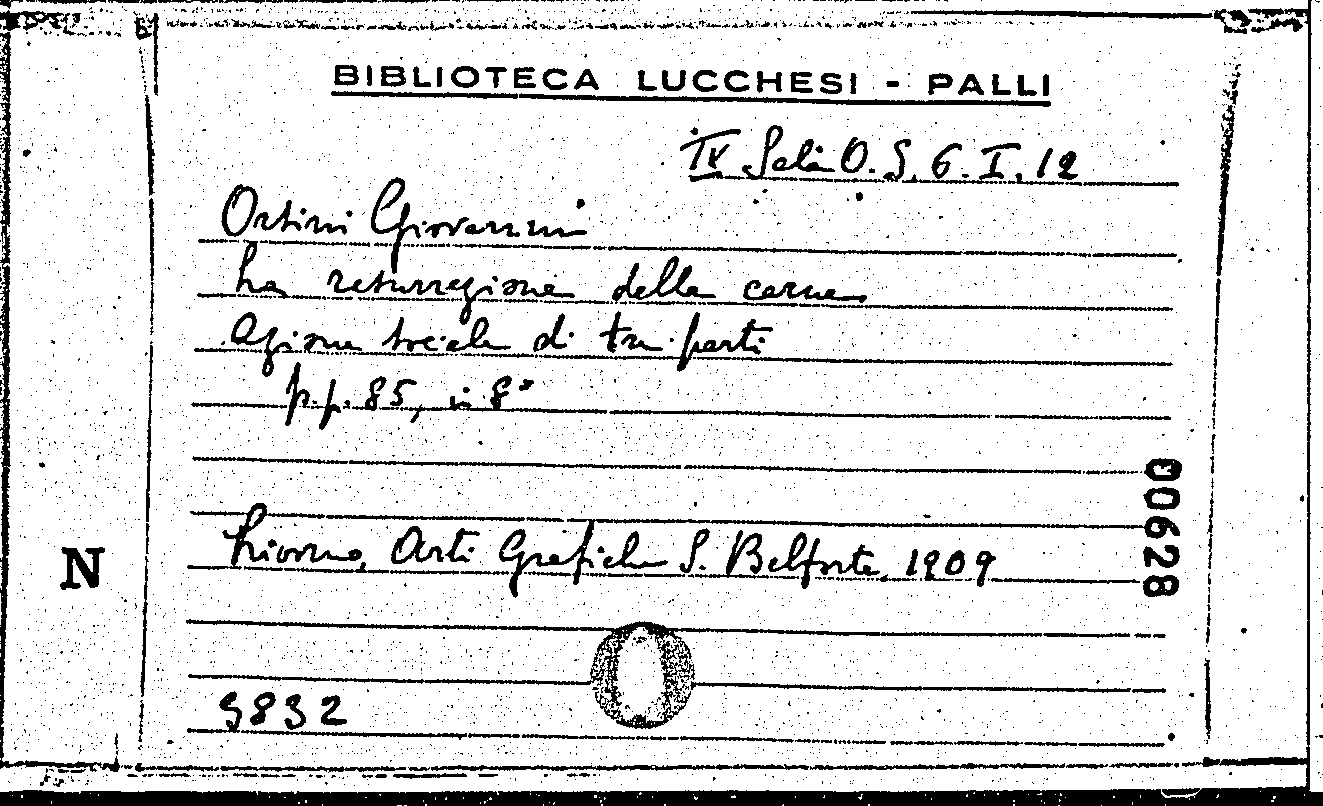 BIBLIOTECA LUCCHESI - PALLI
IV Sala O. S. 6. I. 12
Orsini Giovanni
La resurrezione della carne
Azione sociale di tre parti
p.p. 85, in 8°
Livorno, Arti Grafiche S. Belforte, 1909
N
00628
9832